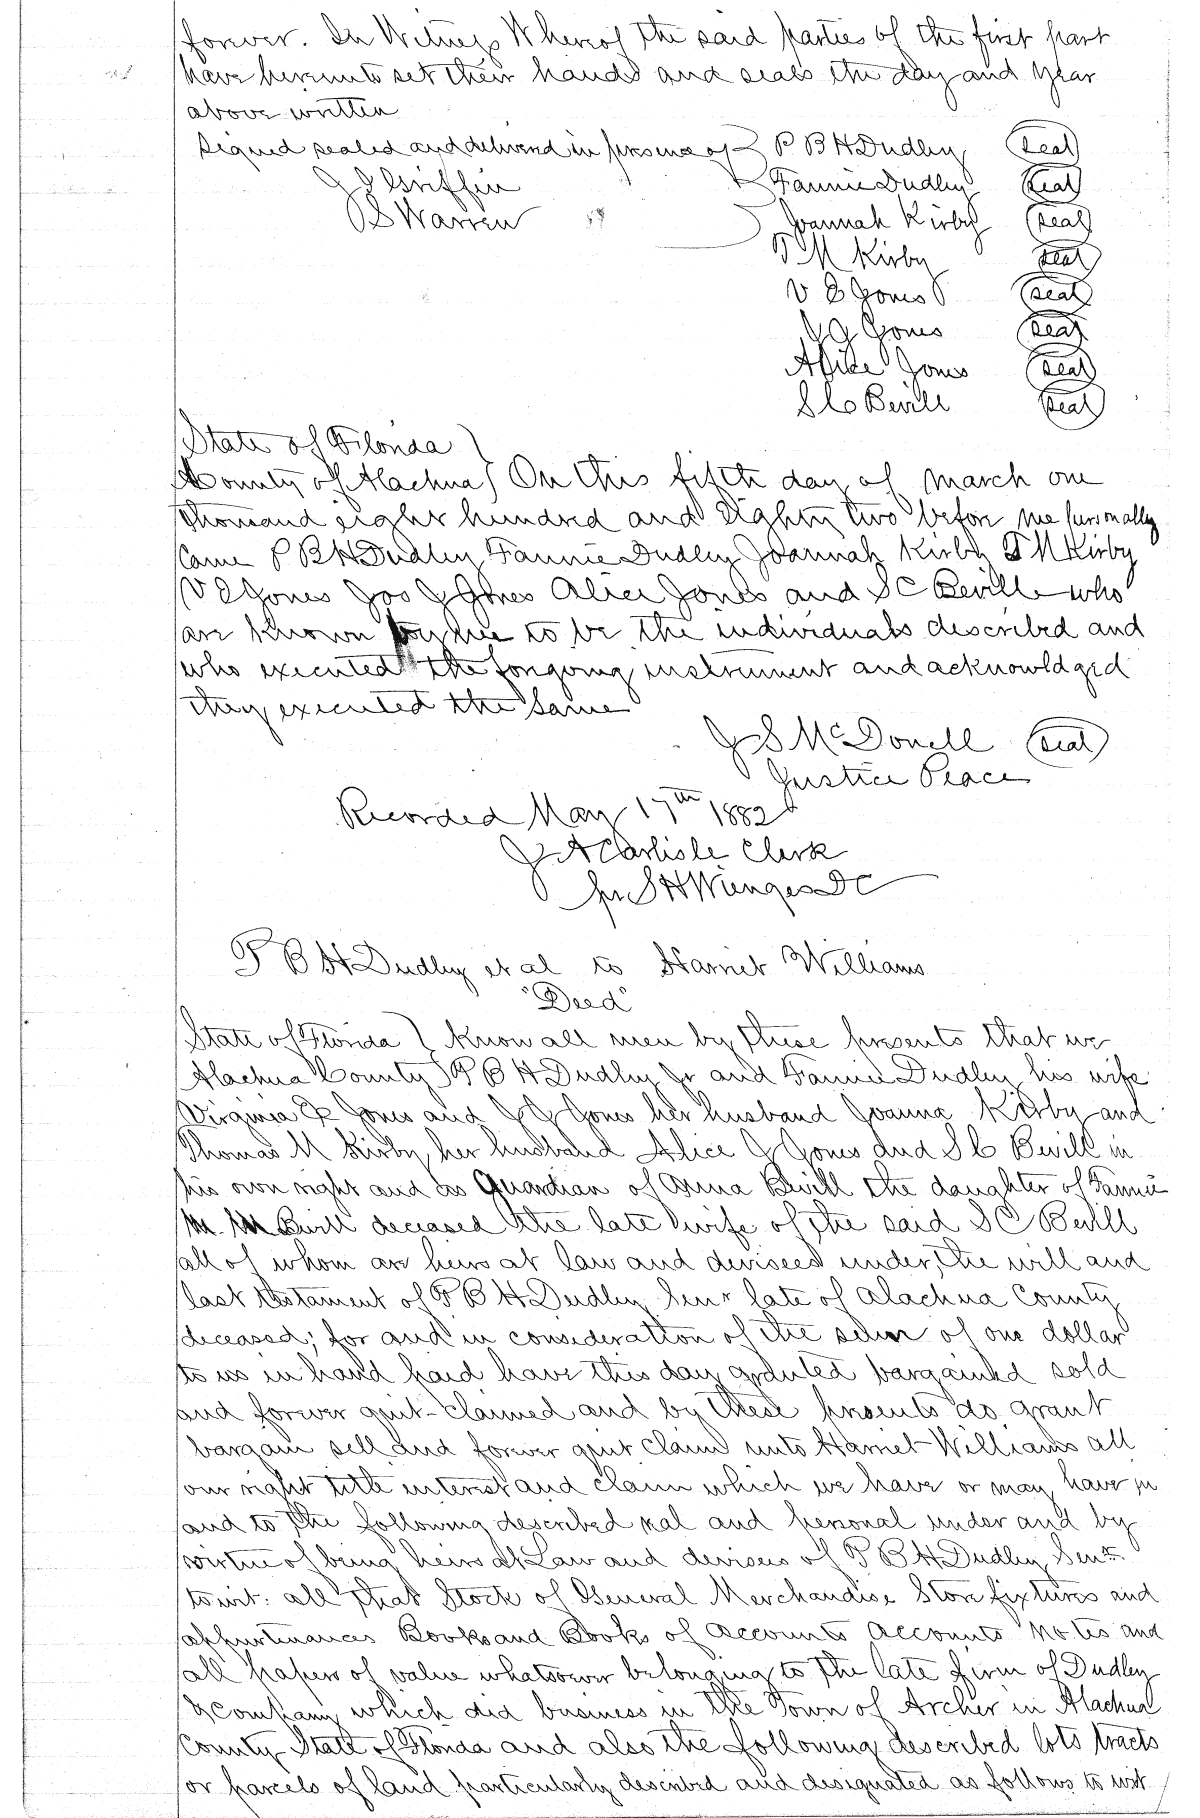 forever. In Witness Whereof the said parties of the first part
have hereunto set their hands and seals the day and year
above written
Signed sealed and delivered in presence of P B H Dudley seal
J J Griffin Fannie Dudley seal
P S Warren Joannah Kirby seal
T M Kirby seal
V E Jones seal
J G Jones seal
Alice Jones seal
S C Bevill seal
State of Florida
County of Alachua On this fifth day of March one
thousand eight hundred and Eighty two before me personally
came P B H Dudley Fannie Dudley Joannah Kirby T M Kirby
V E Jones Jos G Jones Alice Jones and S C Beville who
are known by me to be the individuals described and
who executed the forgoing instrument and acknowldged
they executed the same
J S McDonell seal
Justice Peace
Recorded May 17th 1882
J A Carlisle Clerk
pr S H Wienges DC
P B H Dudley et al to Harriet Williams
"Deed"
State of Florida Know all men by these presents that we
Alachua County P B H Dudley Jr and Fannie Dudley his wife
Virginia E Jones and J G Jones her husband Joanna Kirby and
Thomas M Kirby her husband Alice J Jones and S C Bevill in
his own right and as Guardian of Anna Bevill the daughter of Fannie
M. Bevill deceased the late wife of the said S C Bevill
all of whom are heirs at law and devisees under the will and
last testament of P B H Dudley Senr late of Alachua County
deceased; for and in consideration of the sum of one dollar
to us in hand paid have this day granted bargained sold
and forever quit-claimed and by these presents do grant
bargain sell and forever quit claim unto Harriet Williams all
our right title interest and claim which we have or may have in
and to the following described real and personal under and by
virtue of being heirs at Law and devisees of P B H Dudley Senr
to wit: all that Stock of General Merchandise Store fixtures and
appurtinances Books and Books of accounts accounts notes and
all papers of value whatsoever belonging to the late firm of Dudley
& Company which did business in the Town of Archer in Alachua
County State of Florida and also the following described lots tracts
or parcels of land particularly described and designated as follows to wit